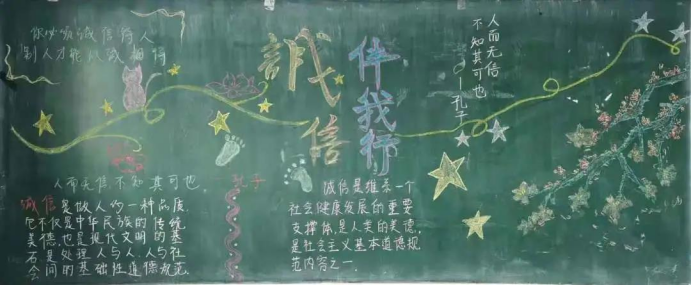 你必须诚信待人
别人才能以诚相待
诚信
伴我行
人而无信
不知其可也
——孔子
人而无信,不知其可也。
孔子
诚信是做人的一种品质,
它不仅是中华民族的传统
美德,也是现代文明的基
石是处理人与人、人与社
会间的基础性道德规范.
诚信是维系一个
社会健康发展的重要
支撑体,是人类的美德,
是社会主义基本道德规
范内容之一.